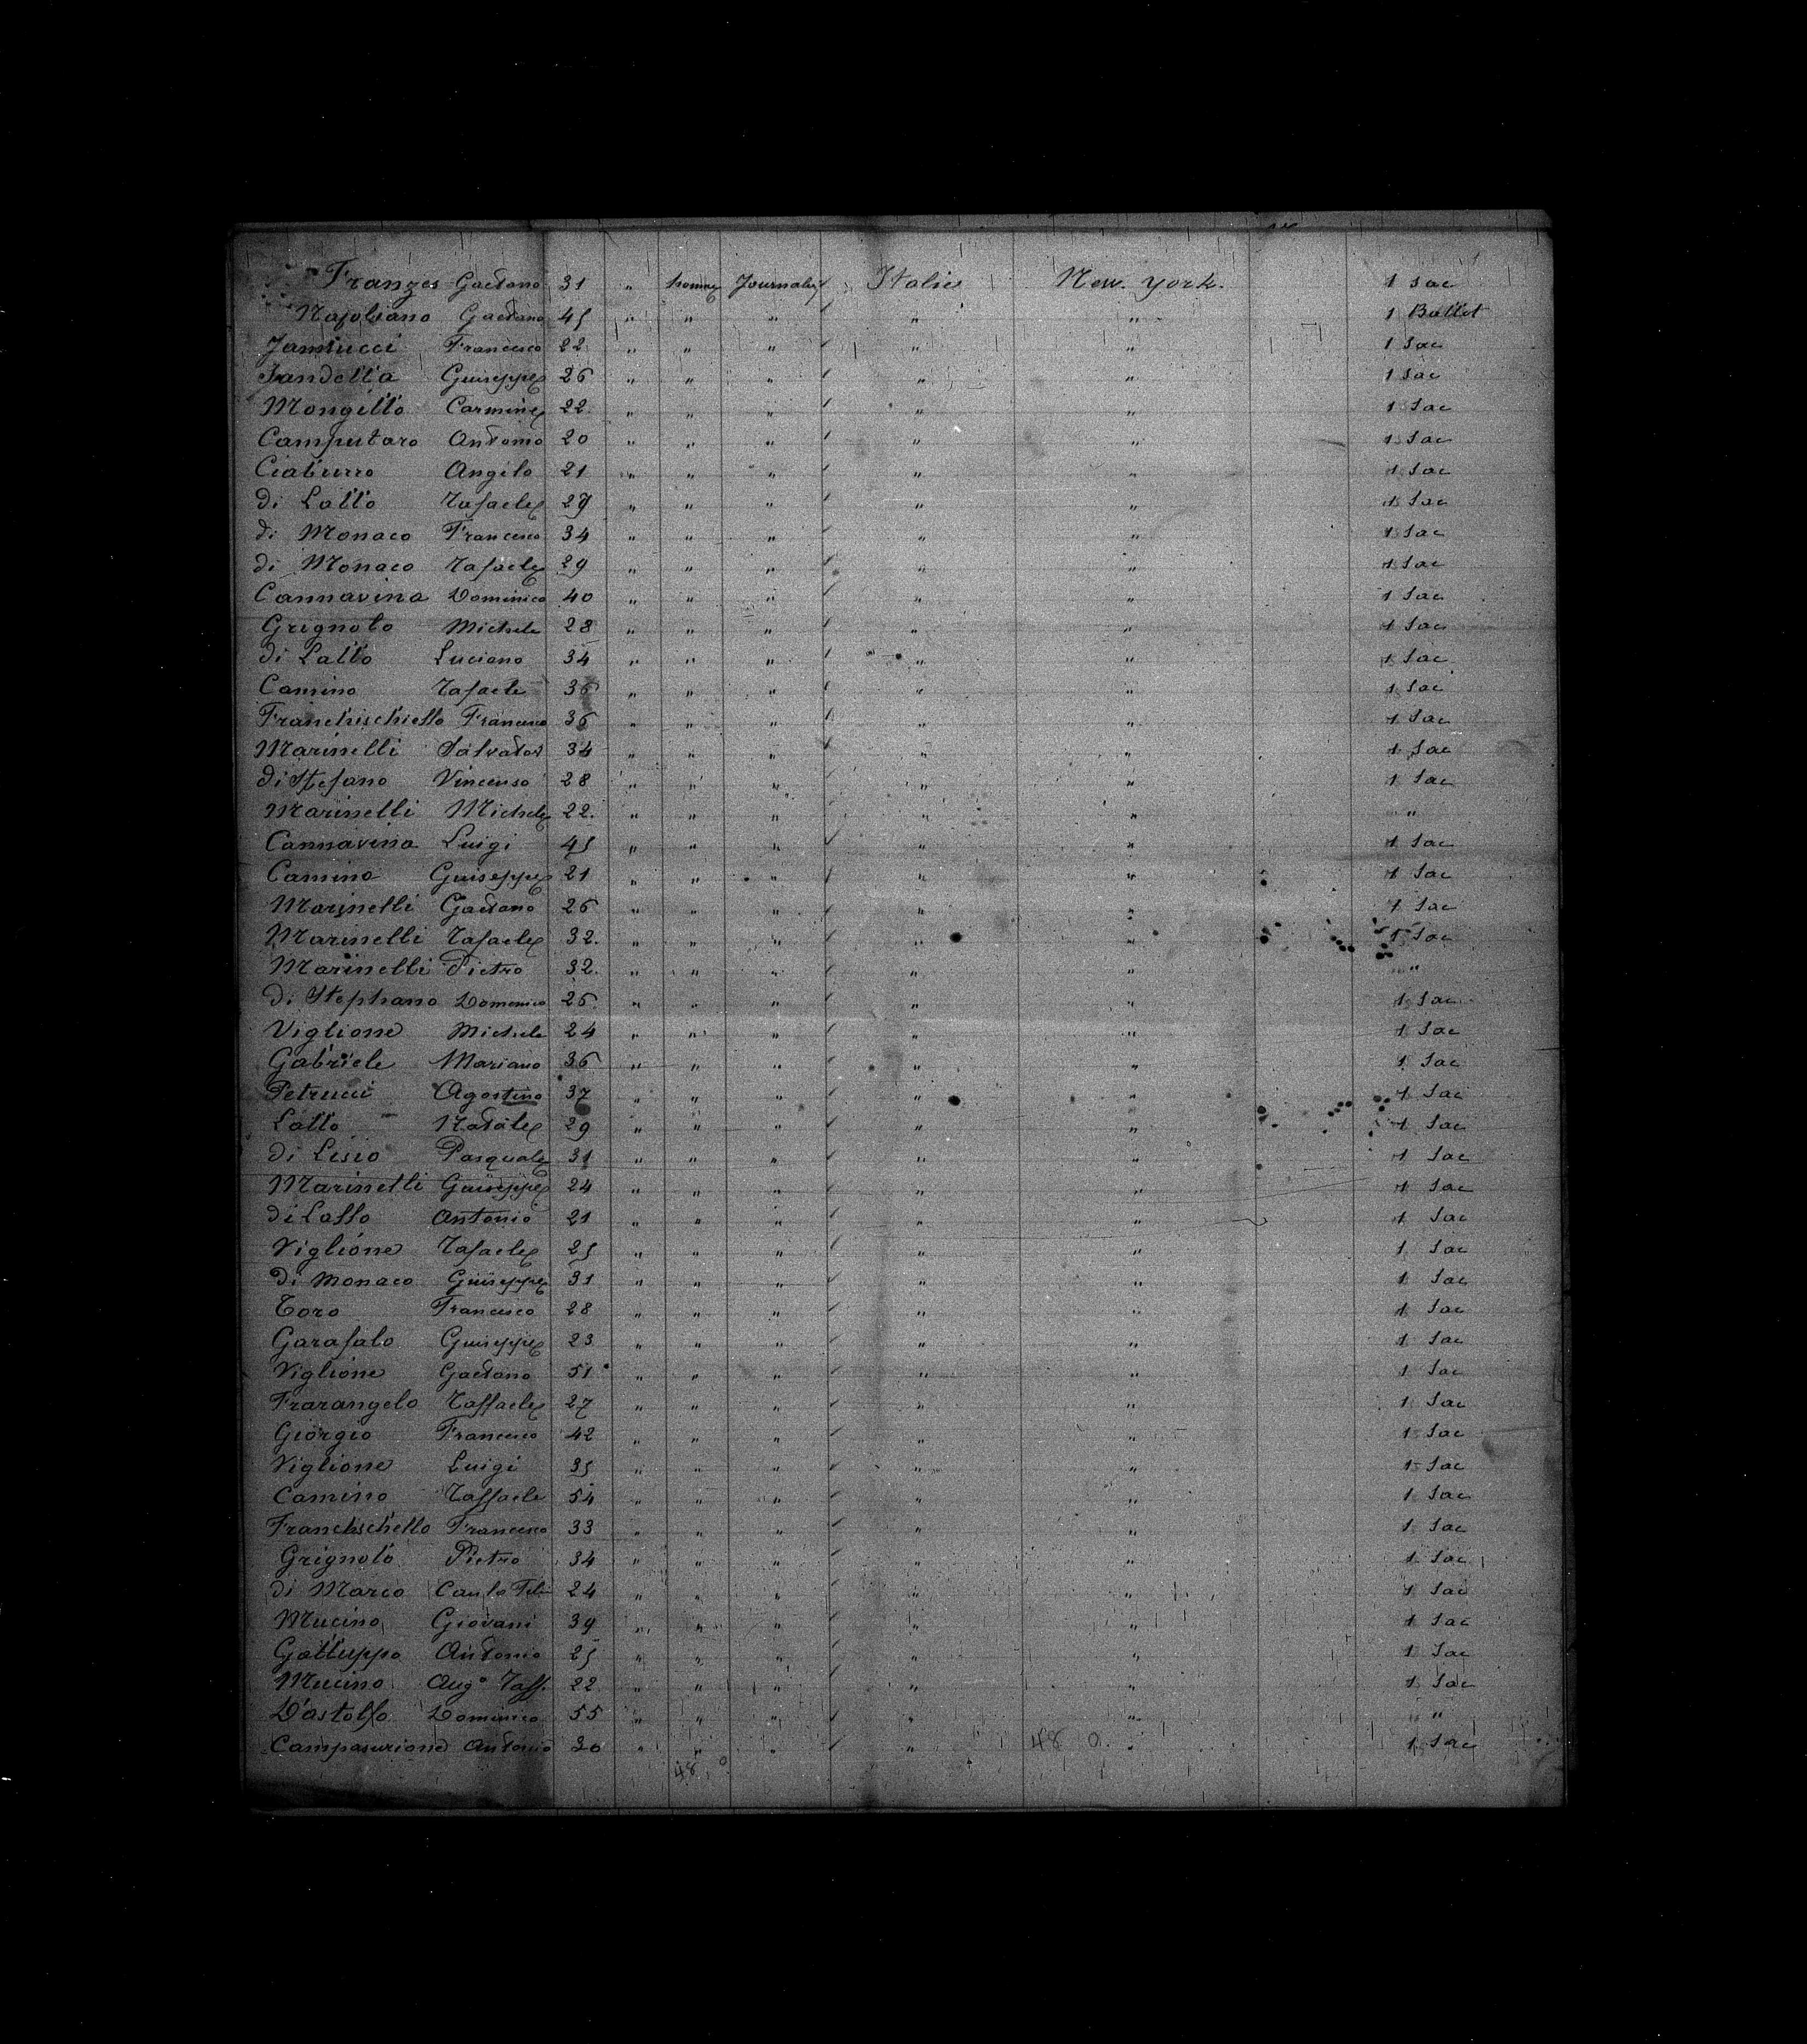 Franzes Gaetano 31 " homme Journalier Italie New-York. 1 Sac
Napoliano Gaetano 45 " " " " " 1 Ballot
Jannucci Francesco 22 " " " " " 1 Sac
Iandella Guiseppe 26 " " " " " 1 Sac
Mongillo Carmine 22 " " " " " 1 Sac
Camputaro Antonio 20 " " " " " 1 Sac
Ciaburro Angelo 21 " " " " " 1 Sac
di Lallo Rafaele 29 " " " " " 1 Sac
di Monaco Francesco 34 " " " " " 1 Sac
di Monaco Rafaele 29 " " " " " 1 Sac
Cannavina Dominico 40 " " " " " 1 Sac
Grignolo Michele 28 " " " " " 1 Sac
di Lallo Luciano 34 " " " " " 1 Sac
Camino Rafaele 36 " " " " " 1 Sac
Franchischiello Francesco 36 " " " " " 1 Sac
Marinelli Salvator 34 " " " " " 1 Sac
di Stefano Vincenso 28 " " " " " 1 Sac
Marinelli Michele 22 " " " " " "
Cannavina Luigi 45 " " " " " 1 Sac
Camino Guiseppe 21 " " " " " 1 Sac
Marinelli Gaetano 26 " " " " " 1 Sac
Marinelli Rafaele 32 " " " " " 1 Sac
Marinelli Pietro 32 " " " " " "
di Stephano Domenico 26 " " " " " 1 Sac
Viglione Michele 24 " " " " " 1 Sac
Gabriele Mariano 36 " " " " " 1 Sac
Petrucci Agostino 37 " " " " " 1 Sac
Lallo Natale 29 " " " " " 1 Sac
di Lisio Pasquale 31 " " " " " 1 Sac
Marinelli Guiseppe 24 " " " " " 1 Sac
di Lallo Antonio 21 " " " " " 1 Sac
Viglione Rafaele 25 " " " " " 1 Sac
di Monaco Guiseppe 31 " " " " " 1 Sac
Toro Francesco 28 " " " " " 1 Sac
Garafalo Guiseppe 23 " " " " " 1 Sac
Viglione Gaetano 51 " " " " " 1 Sac
Frarangelo Raffaele 27 " " " " " 1 Sac
Giorgio Francesco 42 " " " " " 1 Sac
Viglione Luigi 35 " " " " " 1 Sac
Camino Raffaele 54 " " " " " 1 Sac
Franchschello Francesco 33 " " " " " 1 Sac
Grignolo Pietro 34 " " " " " 1 Sac
di Marco 24 " " " " " 1 Sac
Mucino Giovani 39 " " " " " 1 Sac
Galluppo Antonio 25 " " " " " 1 Sac
Mucino Aug° Raff. 22 " " " " " 1 Sac
D'astolfo Dominico 55 " " " " " "
Antonio 30 " " " " 48 0 " 1 Sac
48 0